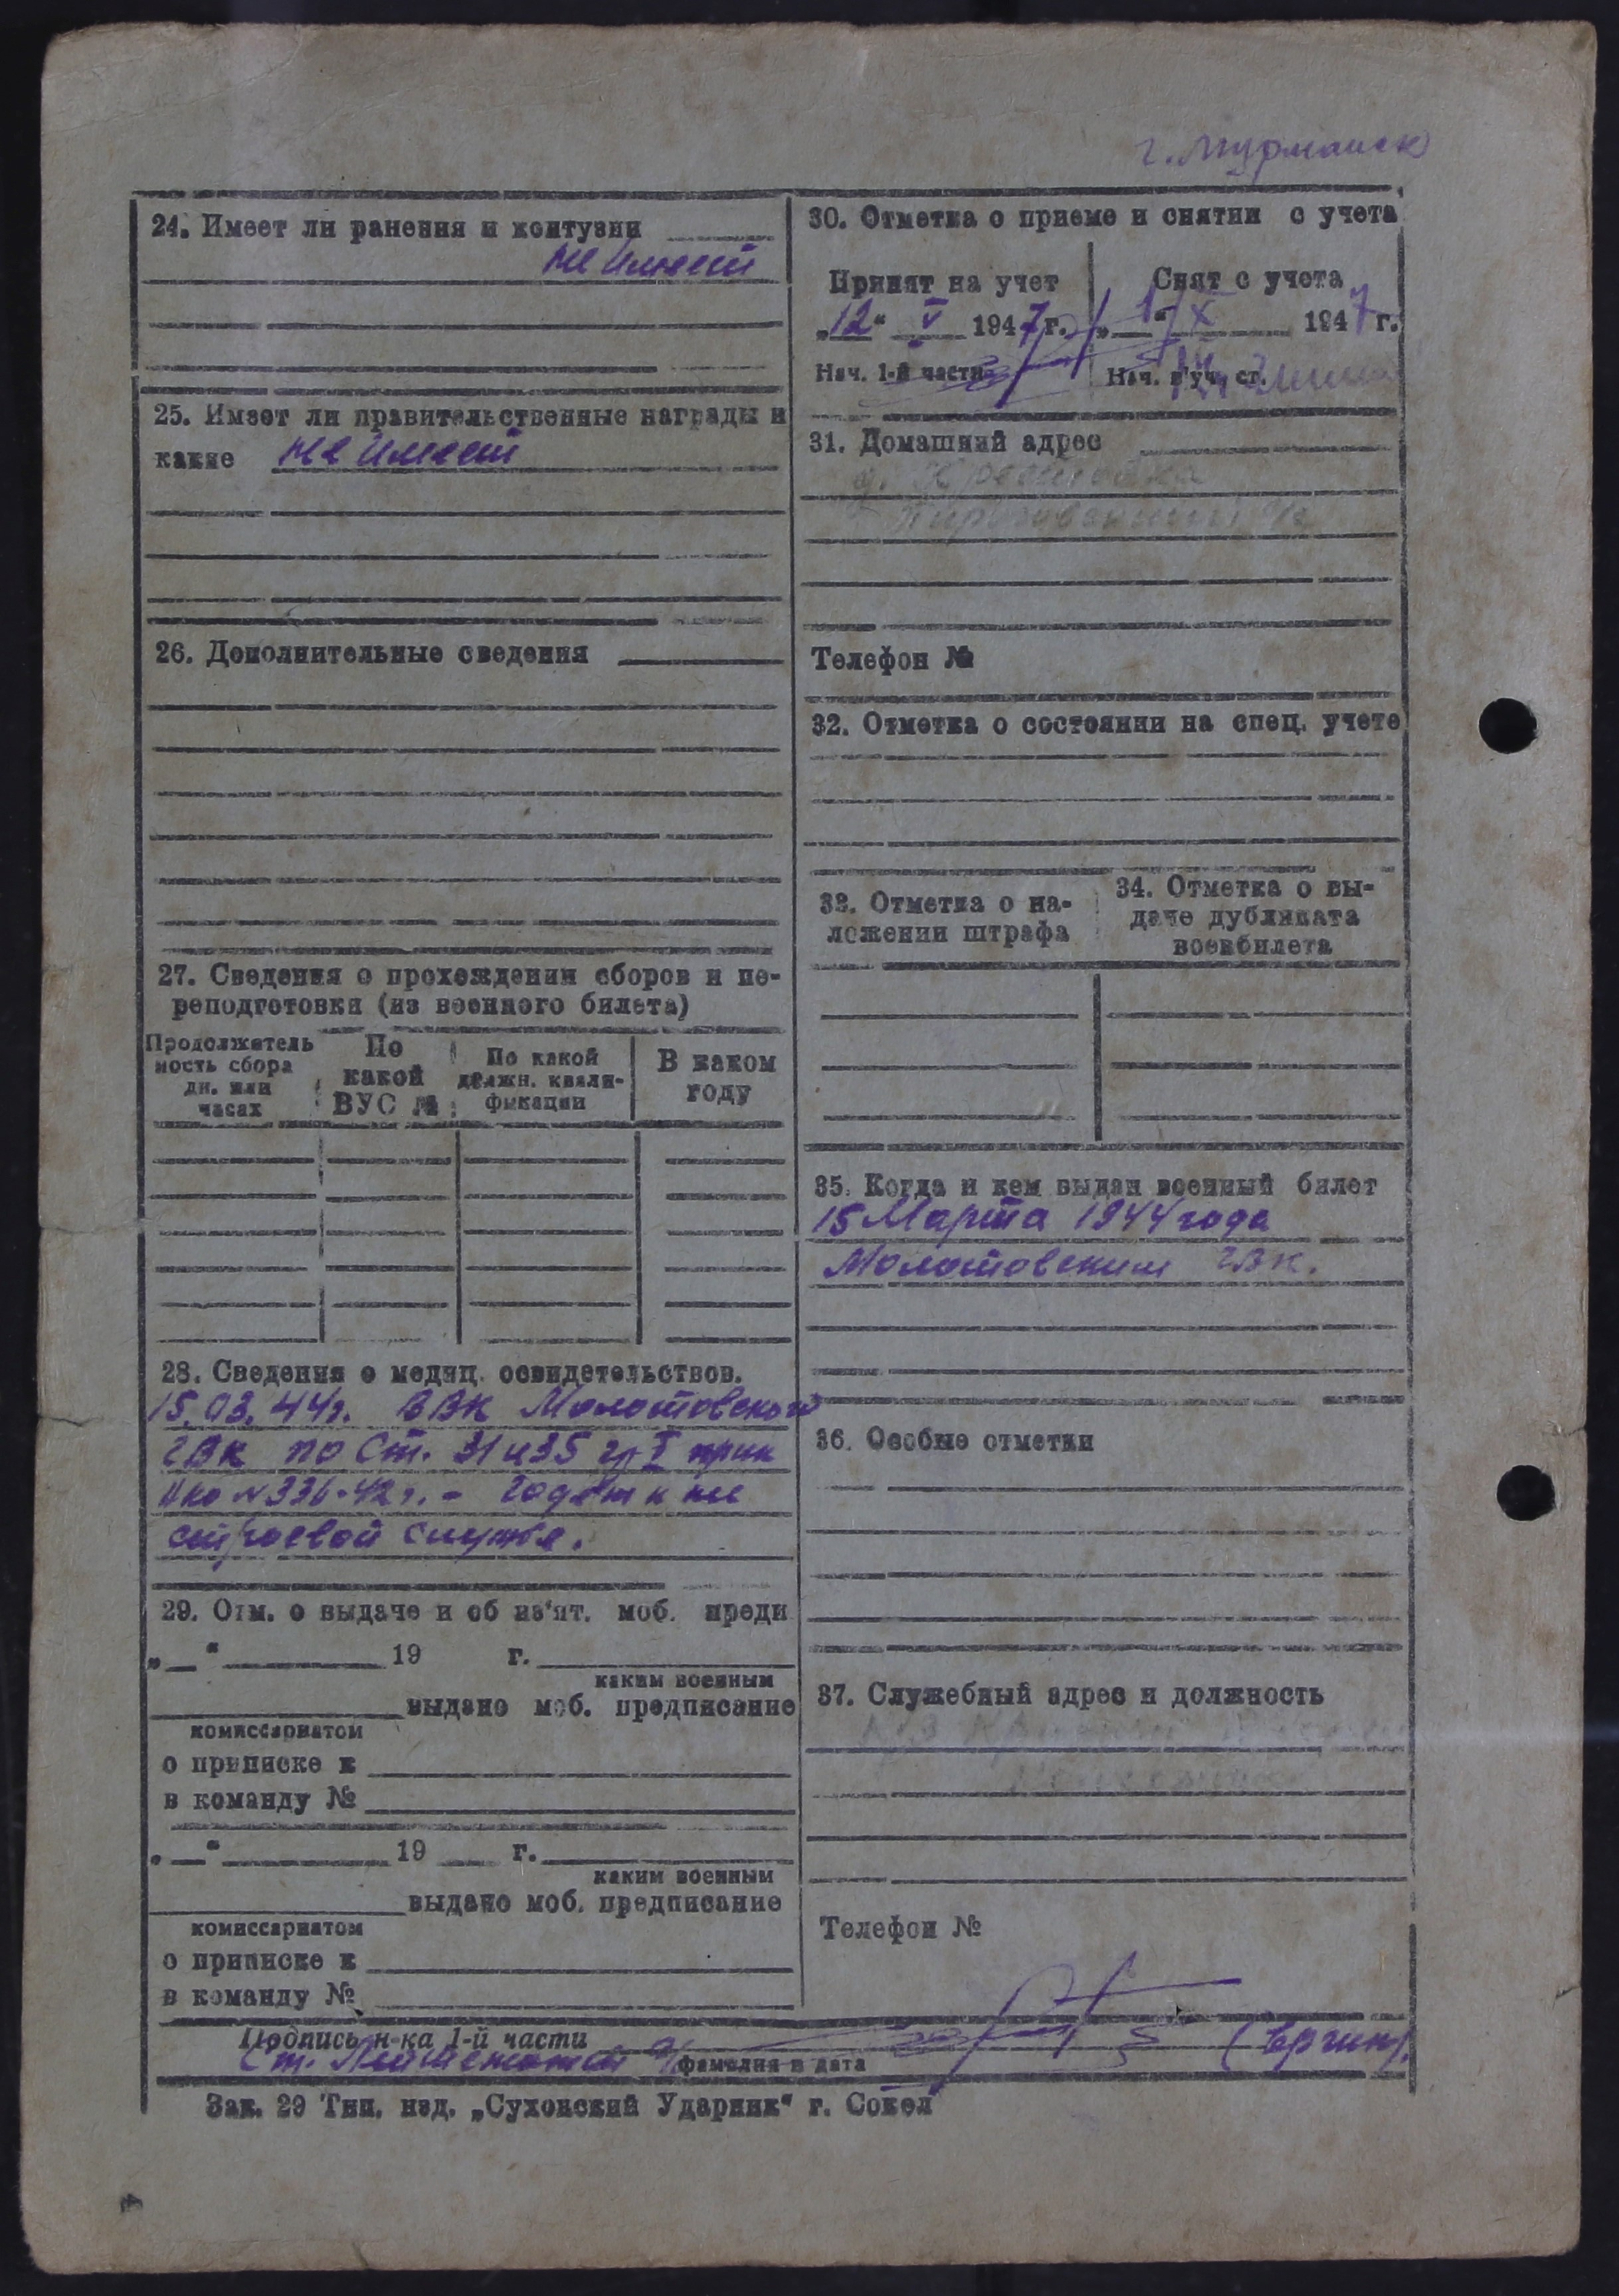 г. Мурманск
24. Имеет ли ранения и контузии
Не имеет
25. Имеет ли правительственные награды и
какие Не имеет
26. Дополнительные сведения
27. Сведения о прохождении сборов и пе-
реподготовки (из военного билета)
Продолжитель
ность сбора
дн. или
часах
По
какой
ВУС №
По какой
должн. квали-
фикации
В каком
году
28. Сведения о медиц. освидетельствов.
15.03.44г. ВВК Молотовской
ГВК по ст. 31 и 35 гр I прик
НКО №336-42г. - годен к не
строевой службе.
29. Отм. о выдаче и об из'ят. моб. предп
„ “ 19 г.
каким военным
выдано моб. предписание
комиссариатом
о приписке к
в команду №
„ “ 19 г.
каким военным
выдано моб. предписание
комиссариатом
о приписке к
в команду №
30. Отметка о приеме и снятии с учета
Принят на учет
„12“ V 1947г.
Нач. 1-й части
Снят с учета
„1“ X 1947г.
Нач. в/уч. ст.
31. Домашний адрес
д.
Телефон №
32. Отметка о состоянии на спец. учете
33. Отметка о на-
ложении штрафа
34. Отметка о вы-
даче дубликата
военбилета
35. Когда и кем выдан военный билет
15 Марта 1944 года
Молотовским ГВК.
36. Особые отметки
37. Служебный адрес и должность
Телефон №
Подпись н-ка 1-й части
Ст. Лейтенант
фамилия и дата
Зак. 29 Тип. изд. „Сухонский Ударник“ г. Сокол